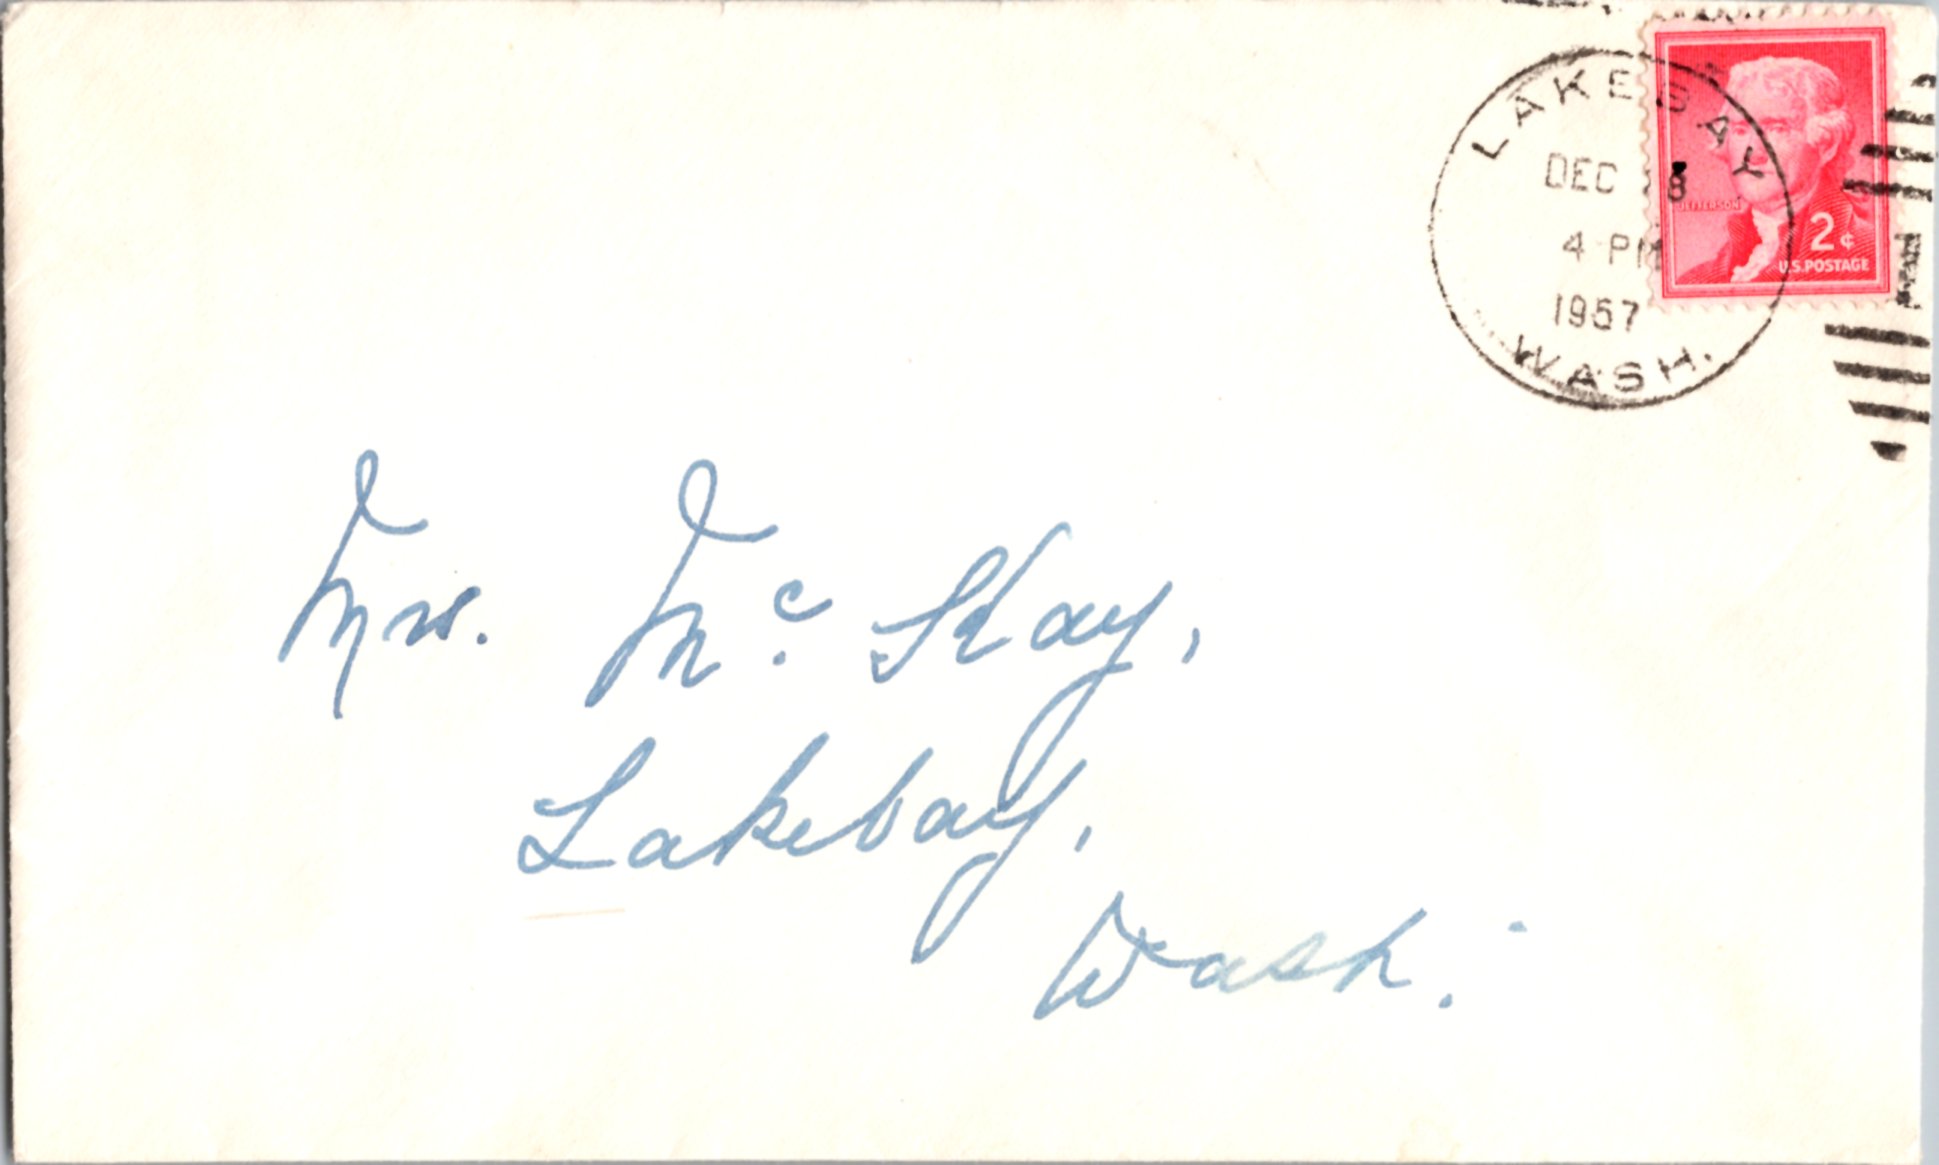 LAKEBAY
DEC 18
4 PM
1957
WASH.
JEFFERSON
2¢
U.S. POSTAGE
Mrs. Mc Kay,
Lakebay,
Wash.